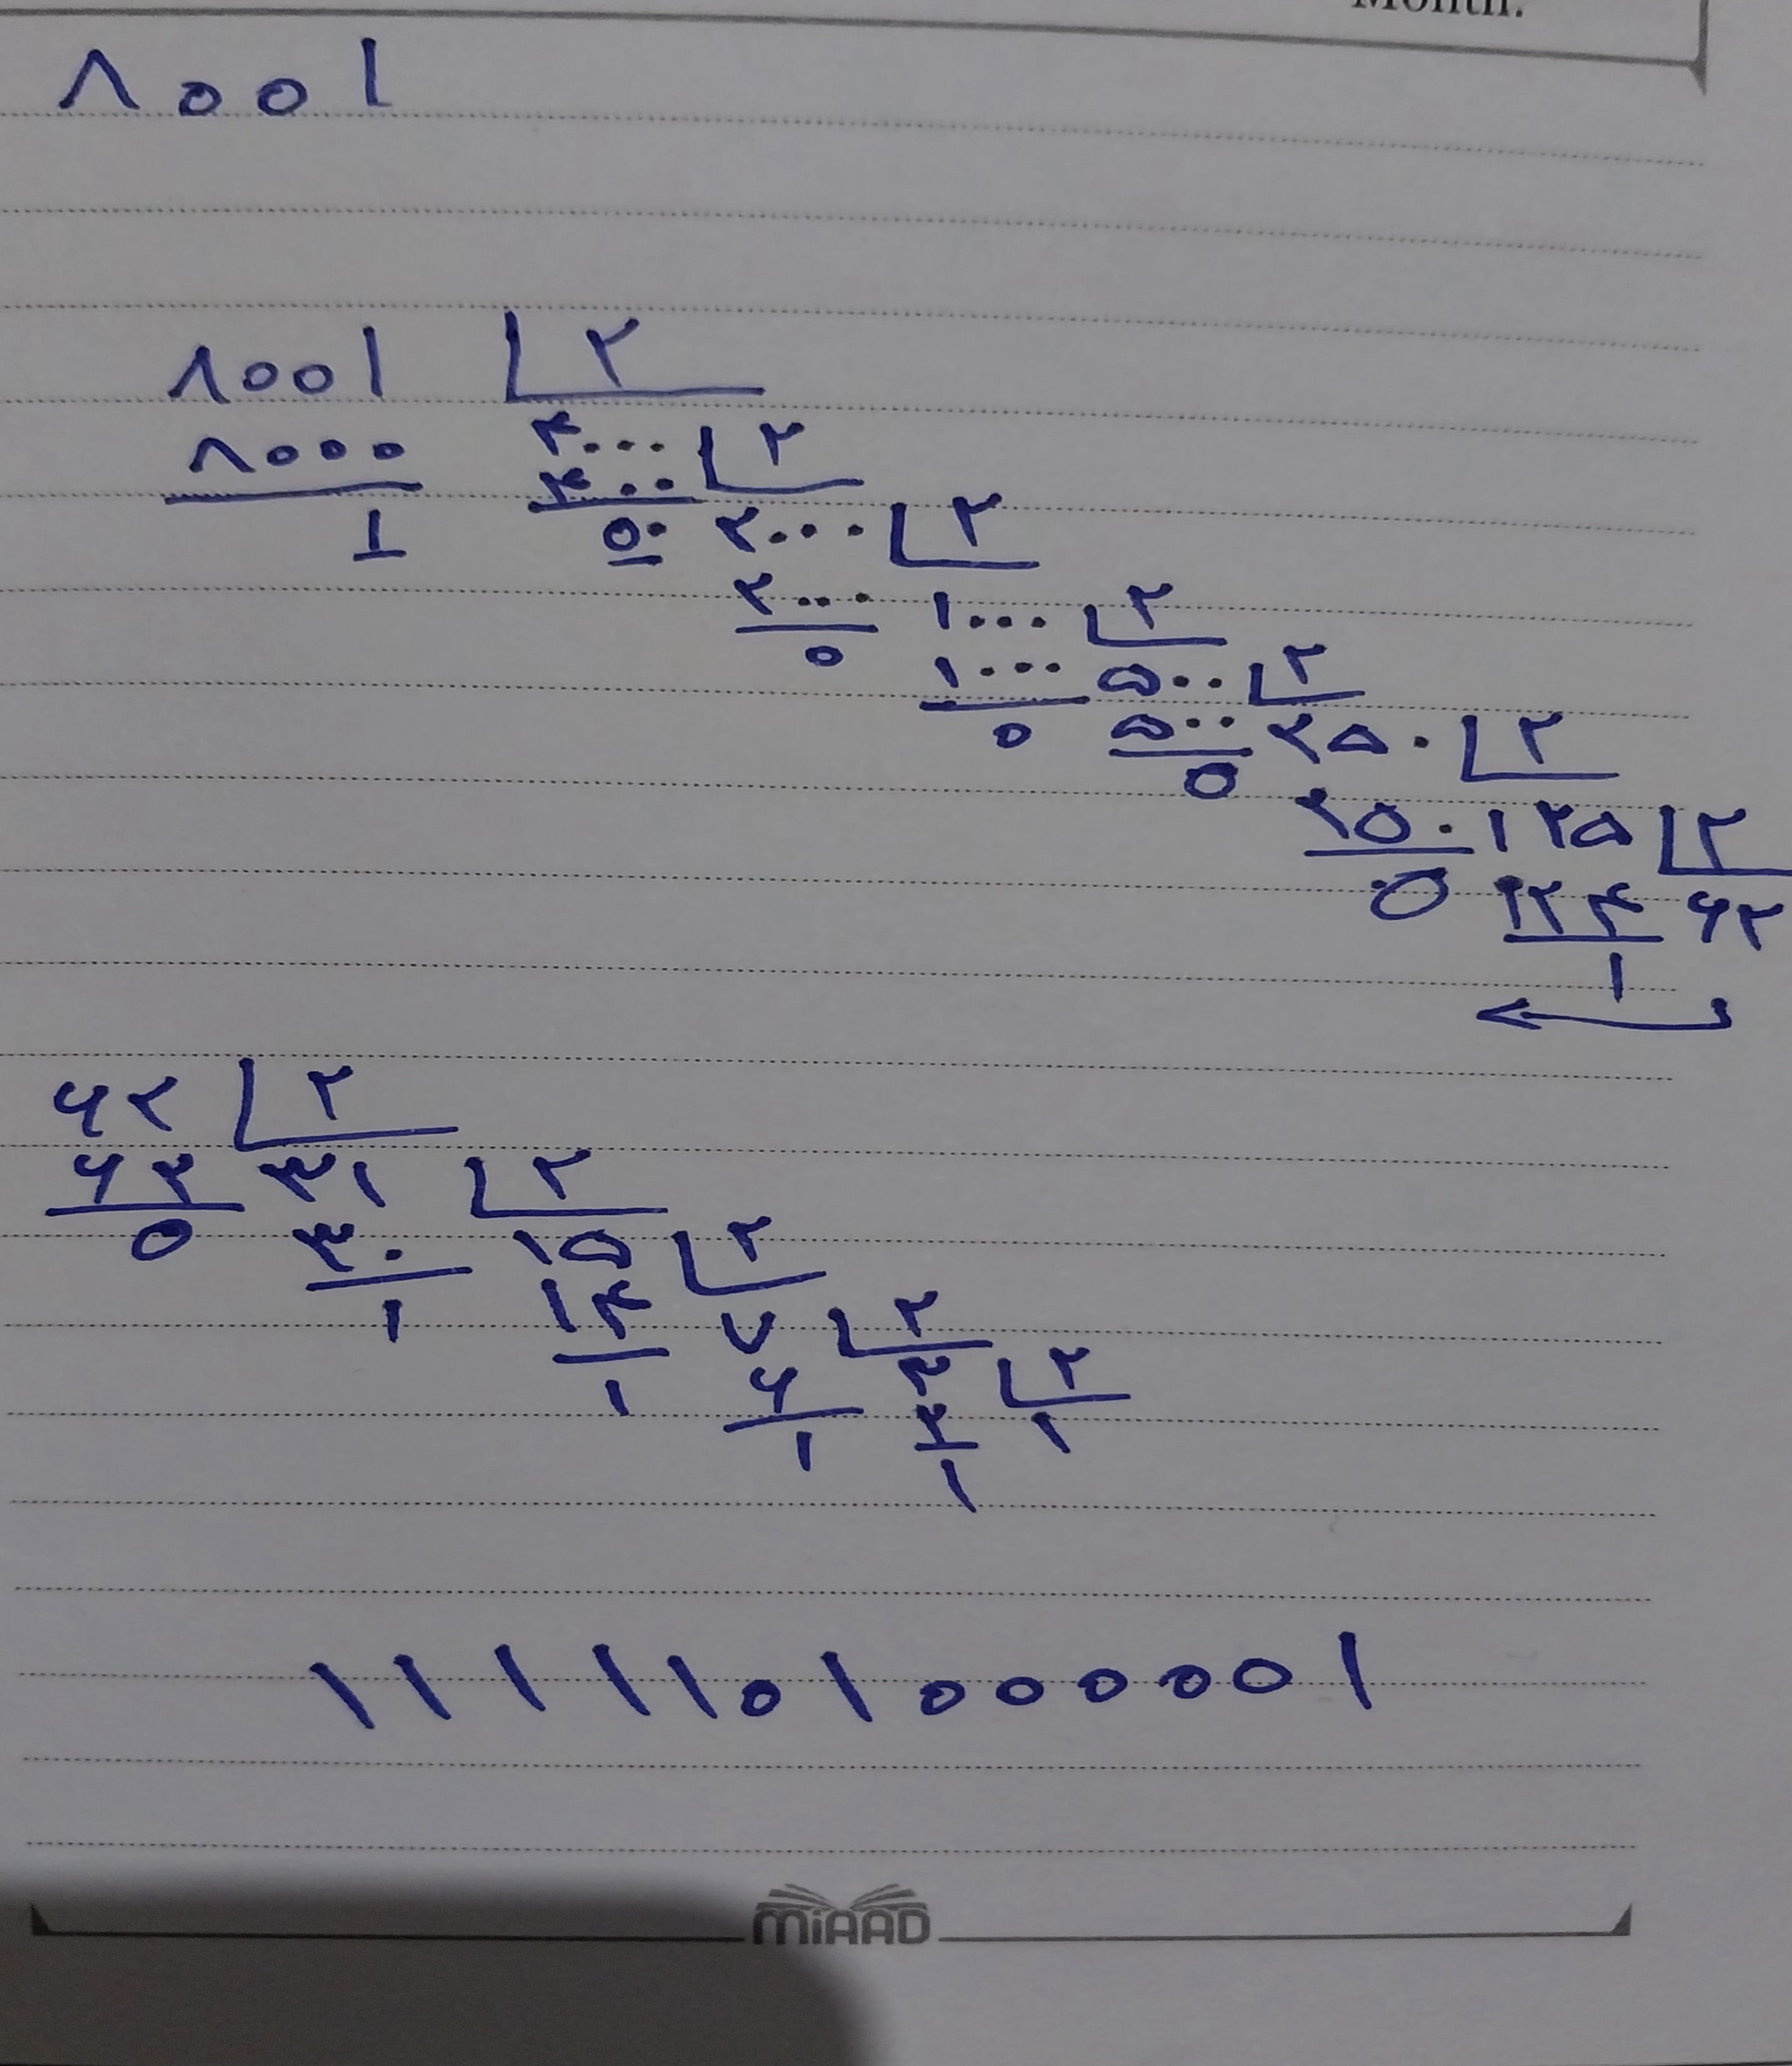 Month:
۸۰۰۱
۸۰۰۱ ۲
۸۰۰۰ ۴۰۰۰ ۲
۱ ۴۰۰۰ ۲۰۰۰ ۲
۰ ۲۰۰۰ ۱۰۰۰ ۲
۰ ۱۰۰۰ ۵۰۰ ۲
۰ ۵۰۰ ۲۵۰ ۲
۰ ۲۵۰ ۱۲۵ ۲
۰ ۱۲۴ ۶۲
۱
۶۲ ۲
۶۲ ۳۱ ۲
۰ ۳۰ ۱۵ ۲
۱ ۱۴ ۷ ۲
۱ ۶ ۳ ۲
۱ ۲ ۱
۱
۱۱۱۱۱۰۱۰۰۰۰۰۱
MIAAD